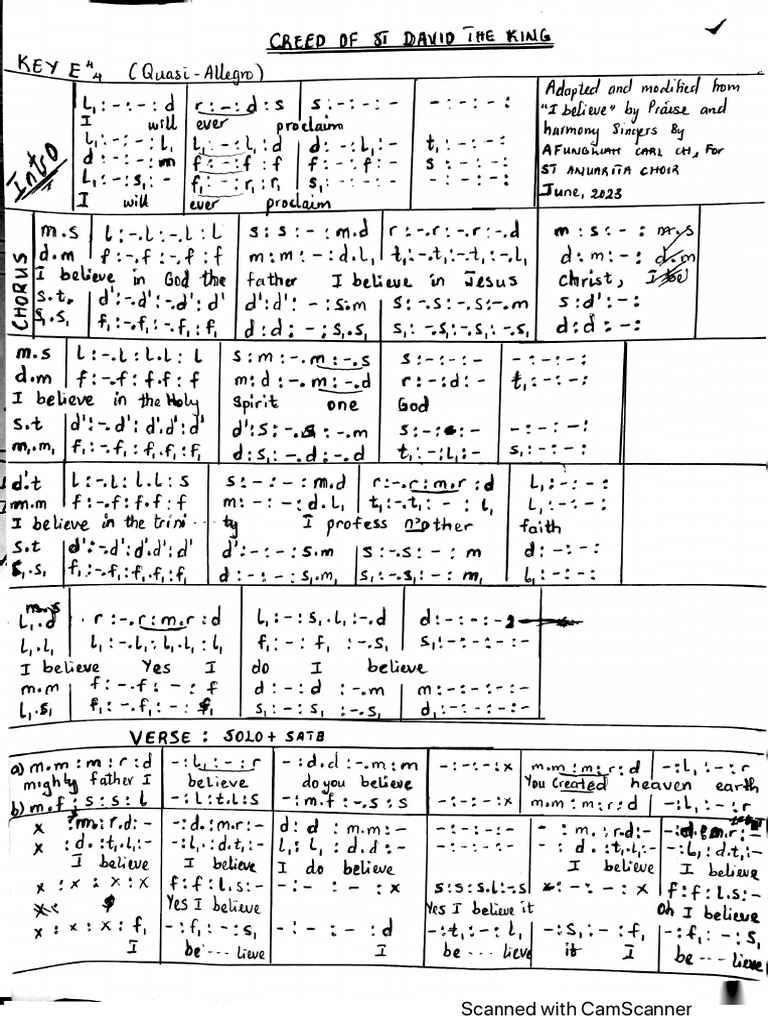 CREED OF ST DAVID THE KING
KEY E"4 (Quasi-Allegro)
Intro
Adapted and modified from
"I believe" by Praise and
harmony Singers By
AFUNGHWAH CARL CH, For
ST ANUARITA CHOIR
June, 2023
L₁ : - : - : d | r : - : d : s | s : - : - : - | - : - : - : -
I will ever proclaim
L₁ : - : - : L₁ | L₁ : - : L₁ : d | d : - : L₁ : - | t₁ : - : - : -
d : - : - : m | f : - : f : f | f : - : f : - | s : - : - : -
L₁ : - : s₁ : - | f₁ : - : r₁ : r₁ | s₁ : - : - : - | - : - : - : -
I will ever proclaim
CHORUS
m.s | l : -.l : -.l : l | s : s : - : m.d | r : -.r : -.r : -.d | m : s : - : m.s
d.m | f : -.f : -.f : f | m : m : - : d.L₁ | t₁ : -.t₁ : -.t₁ : -.L₁ | d : m : - : d.m
I believe in God the father I believe in Jesus Christ, I be
s.t. | d' : -.d' : -.d' : d' | d' : d' : - : s.m | s : -.s : -.s : -.m | s : d' : - :
s₁.s₁ | f₁ : -.f₁ : -.f₁ : f₁ | d : d : - : s₁.s₁ | s₁ : -.s₁ : -.s₁ : -.s₁ | d : d : - :
m.s | l : -.l : l.l : l | s : m : -.m : -.s | s : - : - : - | - : - : - :
d.m | f : -.f : f.f : f | m : d : -.m : -.d | r : - : d : - | t₁ : - : - :
I believe in the Holy Spirit one God
s.t | d' : -.d' : d'.d' : d' | d' : s : -.s : -.m | s : - : s : - | - : - : - :
m₁.m₁ | f₁ : -.f₁ : f₁.f₁ : f₁ | d : s₁ : -.d : -.d | t₁ : - : L₁ : - | s₁ : - : - :
d'.t | l : -.l : l.l : s | s : - : - : m.d | r : -.r : m.r : d | L₁ : - : - :
m.m | f : -.f : f.f : f | m : - : - : d.L₁ | t₁ : -.t₁ : - : L₁ | L₁ : - : - :
I believe in the trini ... ty I profess no other faith
s.t | d' : -.d' : d'.d' : d' | d' : - : - : s.m | s : -.s : - : m | d : - : - :
s₁.s₁ | f₁ : -.f₁ : f₁.f₁ : f₁ | d : - : - : s₁.m₁ | s₁ : -.s₁ : - : m₁ | L₁ : - : - :
m.s
L₁.d | r : -.r : m.r : d | L₁ : - : s₁.L₁ : -.d | d : - : - : -
L₁.L₁ | L₁ : -.L₁ : L₁.L₁ : L₁ | f₁ : - : f₁ : -.s₁ | s₁ : - : - : -
I believe Yes I do I believe
m.m | f : -.f : - : f | d : - : d : -.m | m : - : - : -
L₁.s₁ | f₁ : -.f₁ : - : f₁ | s₁ : - : s₁ : -.s₁ | d₁ : - : - : -
VERSE : SOLO + SATB
a) m.m : m : r : d | - : L₁ : - : r | - : d.d : -.m : m | - : - : - : x | m.m : m : r : d | - : L₁ : - : r
mighty father I believe do you believe You created heaven earth
b) m.f : s : s : l | - : l : t.l : s | - : m.f : -.s : s | - : - : - : x | m.m : m : r : d | - : L₁ : - : r
x : m : r.d : - | - : d. : m.r : - | d : d : m.m : - | - : - : - : - | - : m. : r.d : - | - : d. : m.r : -
x : d. : t₁.L₁ : - | - : L₁. : d.t₁ : - | L₁ : L₁ : d.d : - | - : - : - : - | - : d. : t₁.L₁ : - | - : L₁ : d.t₁ : -
I believe I believe I do believe I believe I believe
x : x : x : x | f : f : L.s : - | - : - : - : x | s : s : s.l : -.s | x : - : - : x | f : f : L.s : -
Yes I believe Yes I believe it Oh I believe
x : x : x : f₁ | - : f₁ : - : s₁ | - : - : - : d | - : t₁ : - : L₁ | - : s₁ : - : f₁ | - : f₁ : - : s₁
I be ... lieve I be ... lieve it I be ... lieve
Scanned with CamScanner